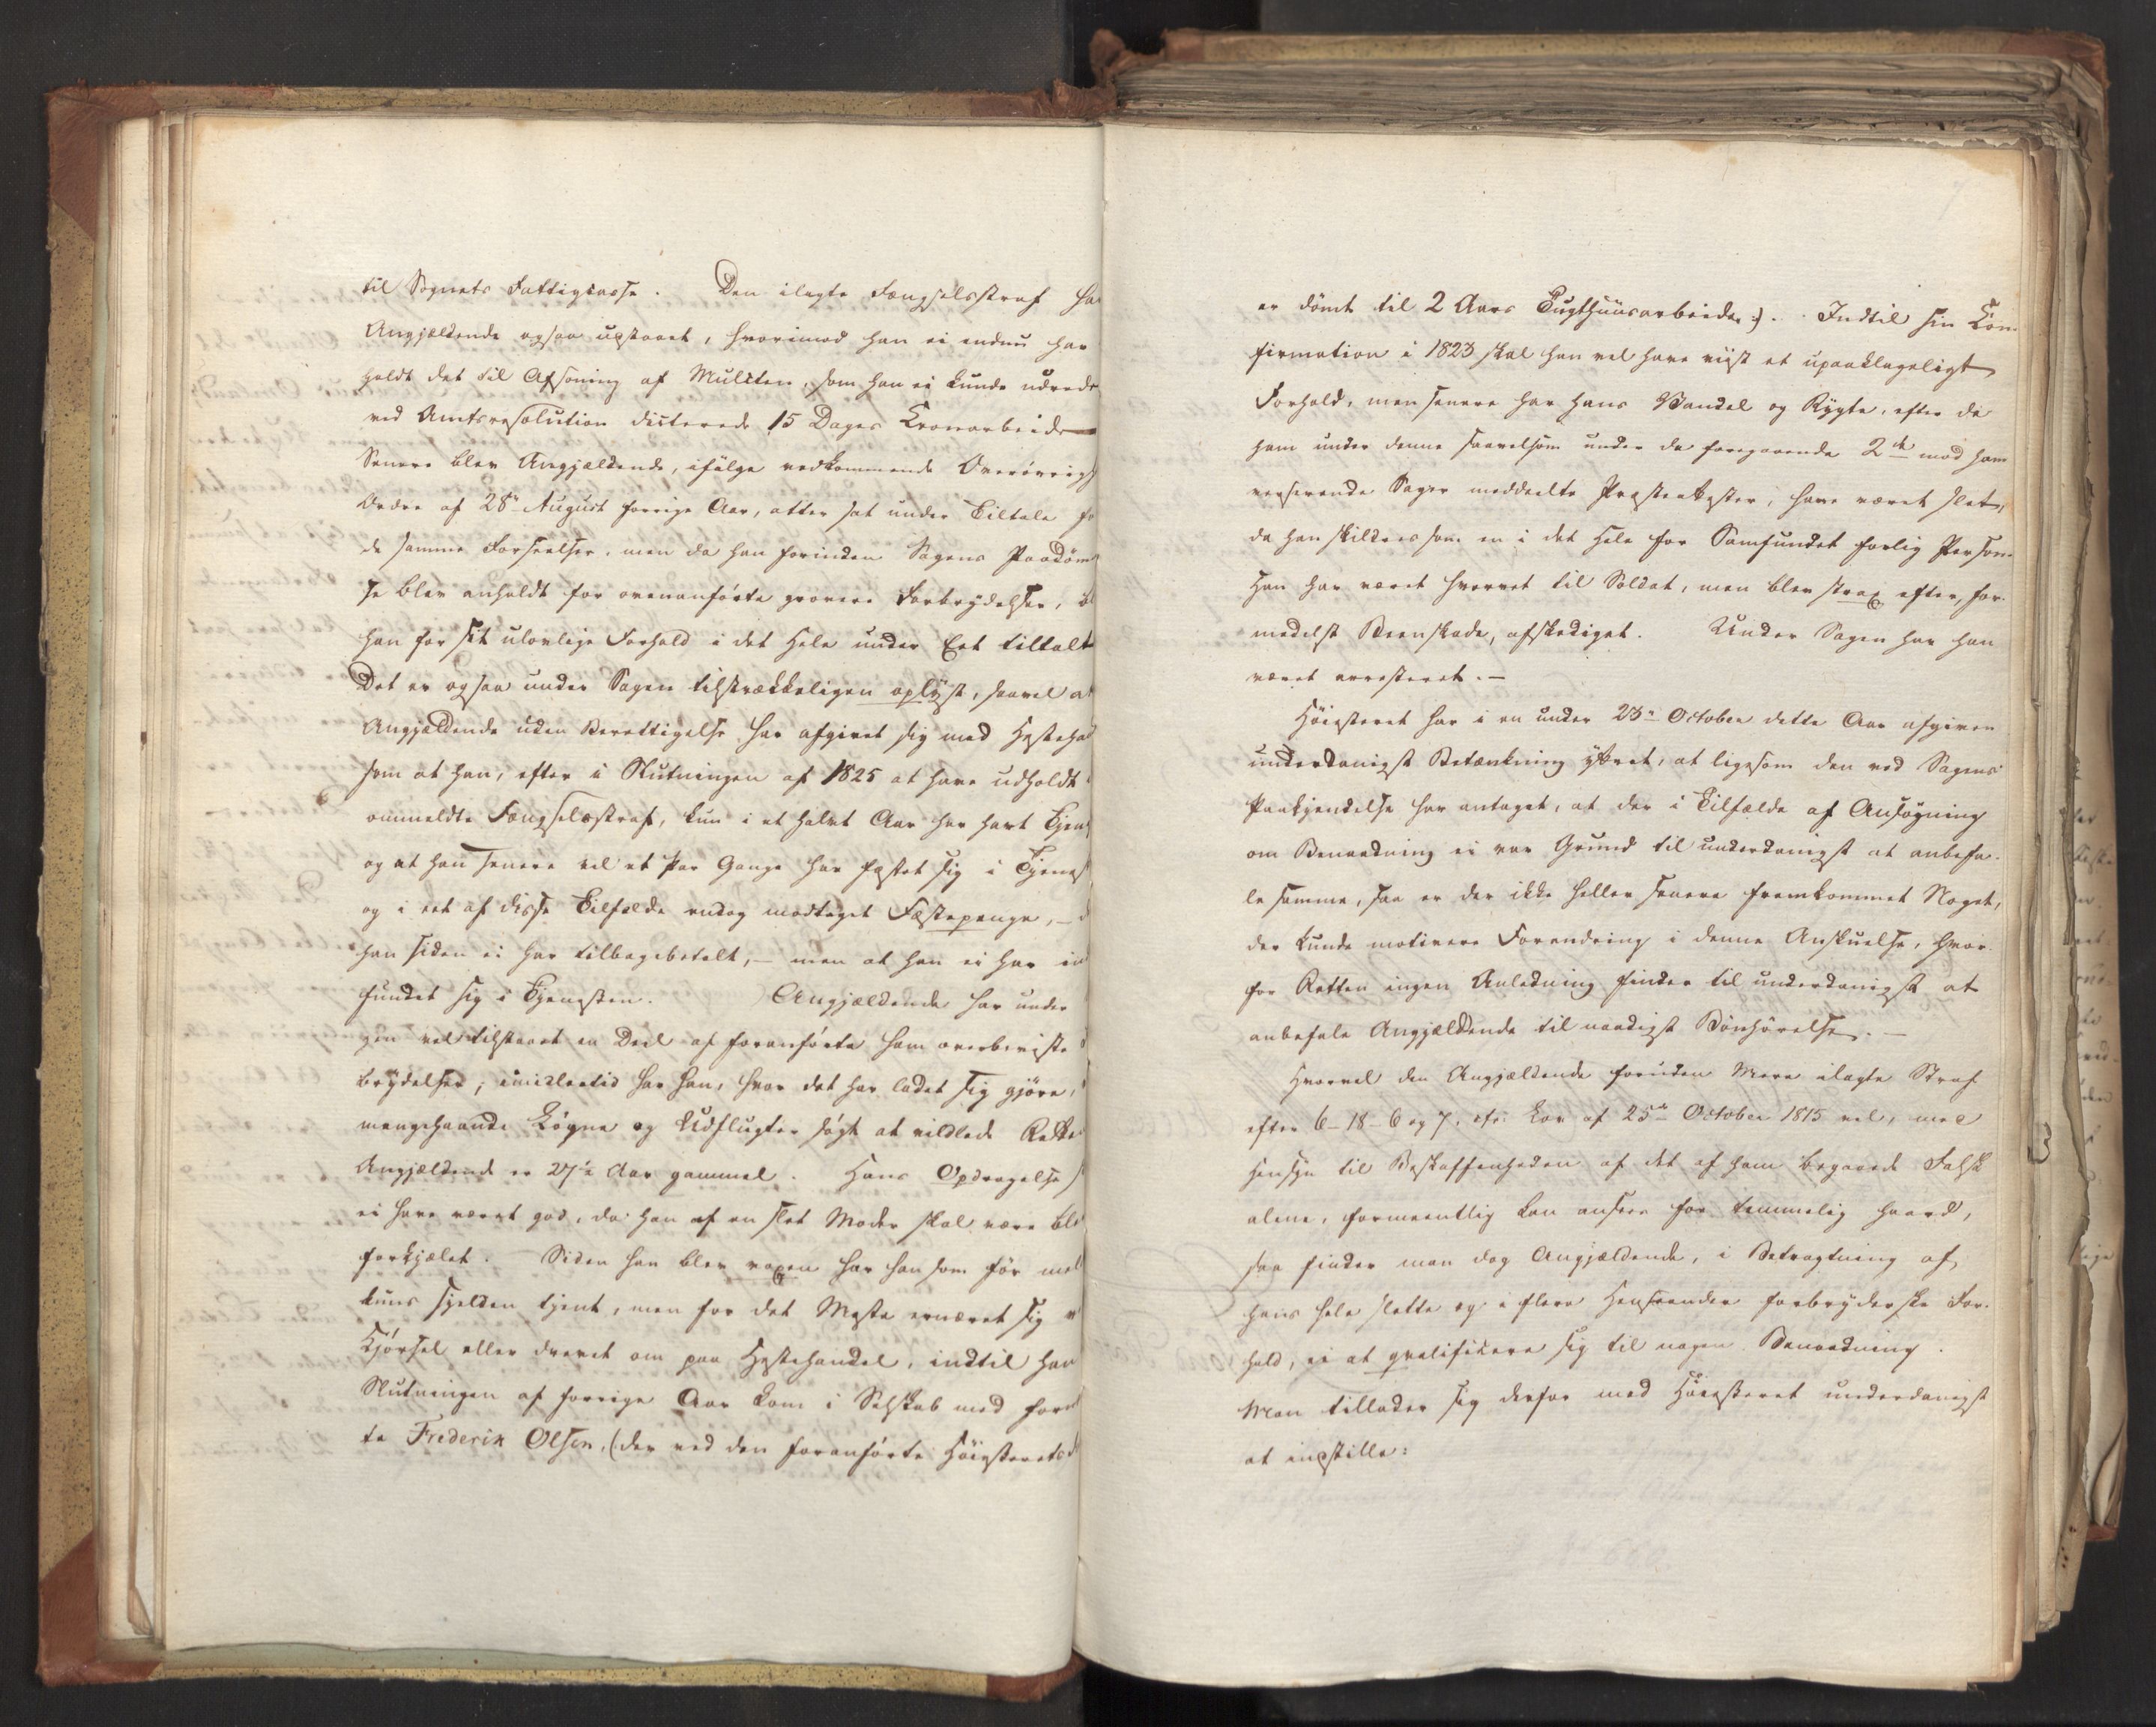 til Sognets Fattigcasse. Den ilagte Fængselsstraf ha
Angjældende ogsaa udstaaet, hvorimod han ei endnu har
holdt det til Afsoning af Mulcten, som han ei kunde udrede
ved Amtsresolution dicterede 15 Dages Kronarbeide
Senere blev Angjældende, ifølge vedkommende Overøvrigh
Ordre af 28de August forrige Aar, atter sat under Tiltale fo
de samme Forseelser, men da han forinden Sagens Paadöm
se blev anholdt for ovenanførte grovere Forbrydelser, bl
han for sit ulovlige Forhold i det Hele under Eet tiltalt
Det er ogsaa under Sagen tilstrækkeligen oplyst, saavel at
Angjældende uden Berettigelse har afgivet sig med Hesteha
som at han, efter i Slutningen af 1825 at have udholdt
ommeldte Fængselsstraf, kun i et halvt Aar har havt Tjenes
og at han senere vel et Par Gange har fæstet sig i Tjenes
og i eet af disse Tilfælde endog modtaget Fæstepenge, – d
han siden ei har tilbagebetalt, – men at han ei har in
fundet sig i Tjenesten. Angjældende har under
gen vel tilstaaet en Deel af foranførte ham overbeviste
brydelser, imidlertid har han, hvor det har ladet sig gjøre,
mangehaande Løgne og Udflugter søgt at vildlede Rette
Angjældende er 27½ Aar gammel. Hans Opdragelse s
ei have været god, da han af en slet Moder skal være ble
forkjælet. Siden han blev voxen har han som før mel
kuns sjelden tjent, men for det Meste ernæret sig v
Kjørsel eller drevet om paa Hestehandel, indtil han
Slutningen af forrige Aar kom i Selskab med forn
te Frederik Olsen, (der ved den foranførte Höiesteretsd
er dömt til 2 Aars Tugthuusarbeide:). Indtil sin Kon
firmation i 1823 skal han vel have viist et upaaklageligt
Forhold, men senere har hans Vandel og Rygte, efter de
ham under denne saavelsom under de foregaaende 2de mod ham
verserende Sager meddeelte Præsteattester, have været slet,
da han skildres som en i det Hele for Samfundet farlig Person.
Han har været hvervet til Soldat, men blev strax efter, for-
medelst Beenskade, afskediget. Under Sagen har han
været arresteret. –
Höiesteret har i en under 23de October dette Aar afgiven
underdanigst Betænkning yttret, at ligesom den ved Sagens
Paakjendelse har antaget, at der i Tilfælde af Ansøgning
om Benaadning ei var Grund til underdanigst at anbefa-
le samme, saa er der ikke heller senere fremkommet Noget,
der kunde motivere Forandring i denne Anskuelse, hvor-
for Retten ingen Anledning finder til underdanigst at
anbefale Angjældende til naadigst Bönhörelse. –
Hvorvel den Angjældende foruden Mere ilagte Straf
efter 6–18–6 og 7, cfr. Lov af 25de October 1815 vel, med
Hensyn til Beskaffenheden af det af ham begaaede Falsk
alene, formeentlig kan ansees for temmelig haard,
saa finder man dog Angjældende, i Betragtning af
hans hele slette og i flere Henseender forbryderske For-
hold, ei at qvalificere sig til nogen Benaadning.
Man tillader sig derfor med Höiesteret underdanigst
at indstille: